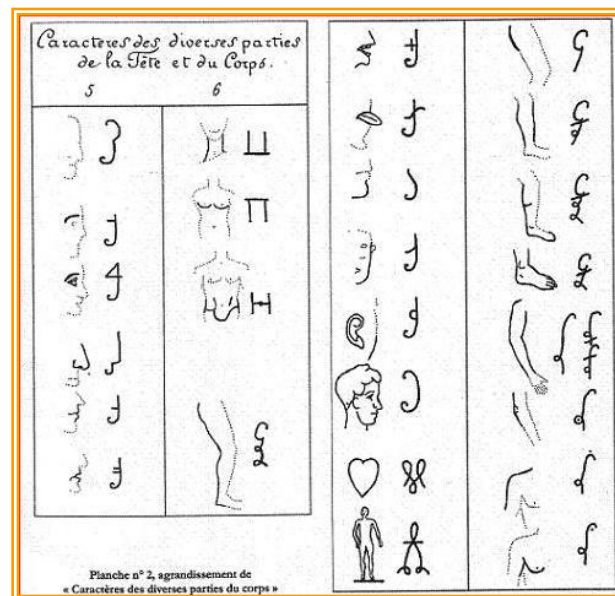 Caractères des diverses parties
de la Tête et du Corps.
5 6
Planche n° 2, agrandissement de
« Caractères des diverses parties du corps »